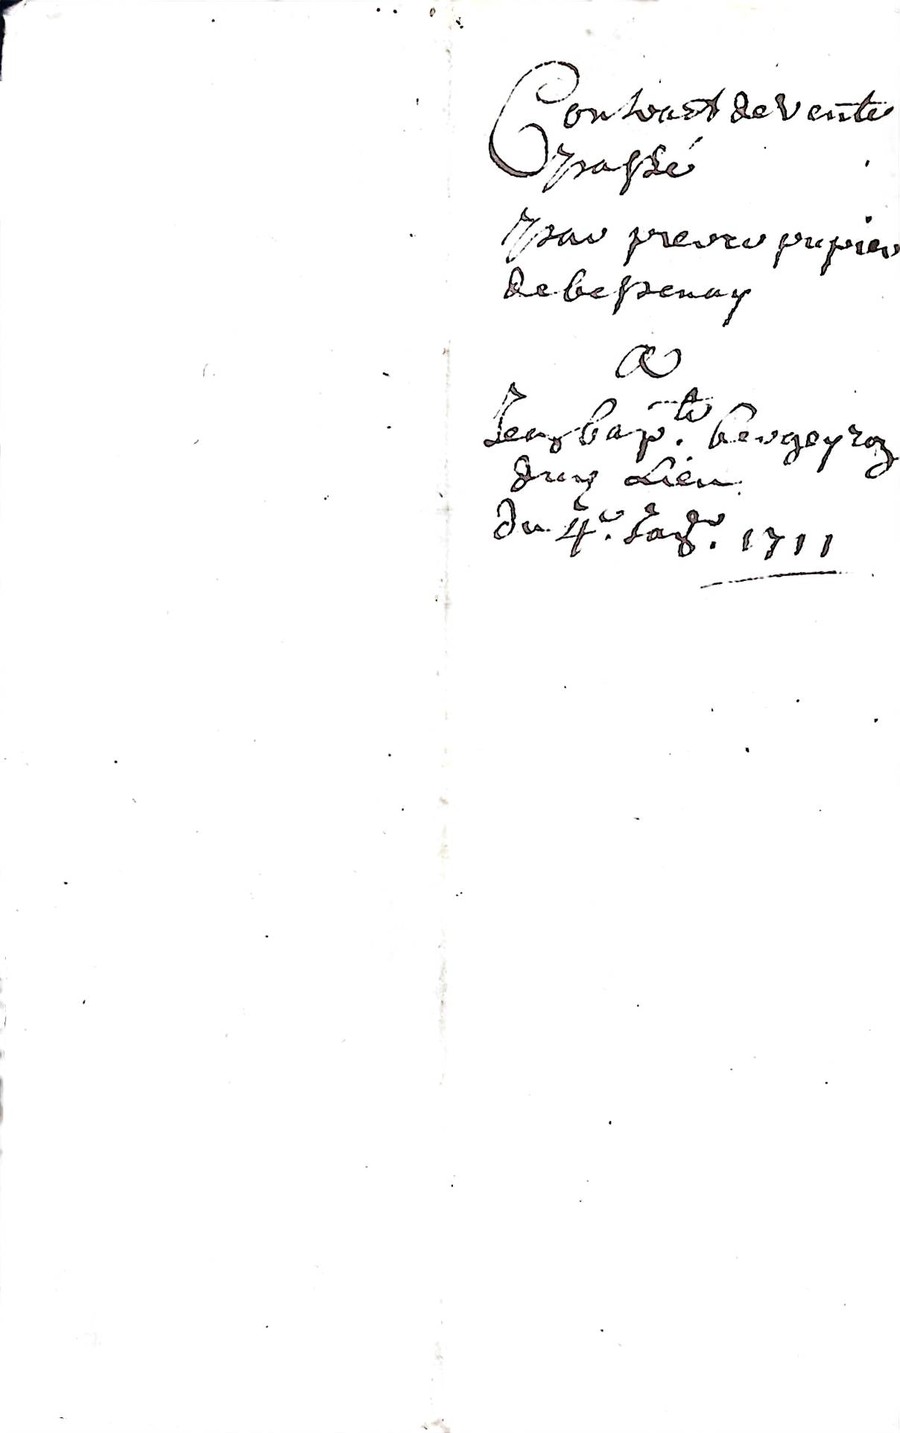 Contract de Vente
passé
par pierre pupier
de bessenay
a
Jean bap.te bergeyron
dud Lieu
du 4e. Jan.r 1711